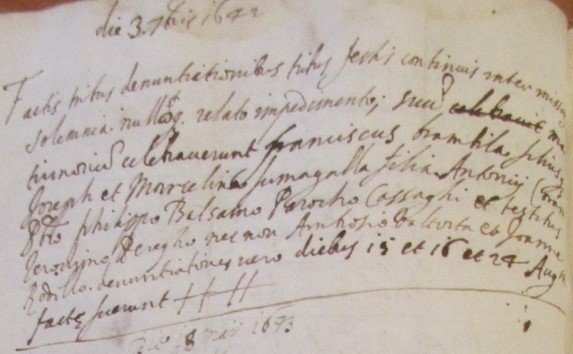 die 3. 7bris 1642
Factis tribus denuntiationibus tribus festis continuis inter missarum
solemnia nulloq. relato impedimento; suũ celebravit ma
trimoniũ celebraverunt franciscus brambila filius
Joseph et Marcelina fumagalla filia Antonij
Pbro philippo Balsamo Parocho Cassaghi et testibus
Jeronimo Peregho nec non Ambrosio et Joanne
denuntiationes vero diebus 15 et 16 et 24 Aug
factę fuerunt
8 maij 1643